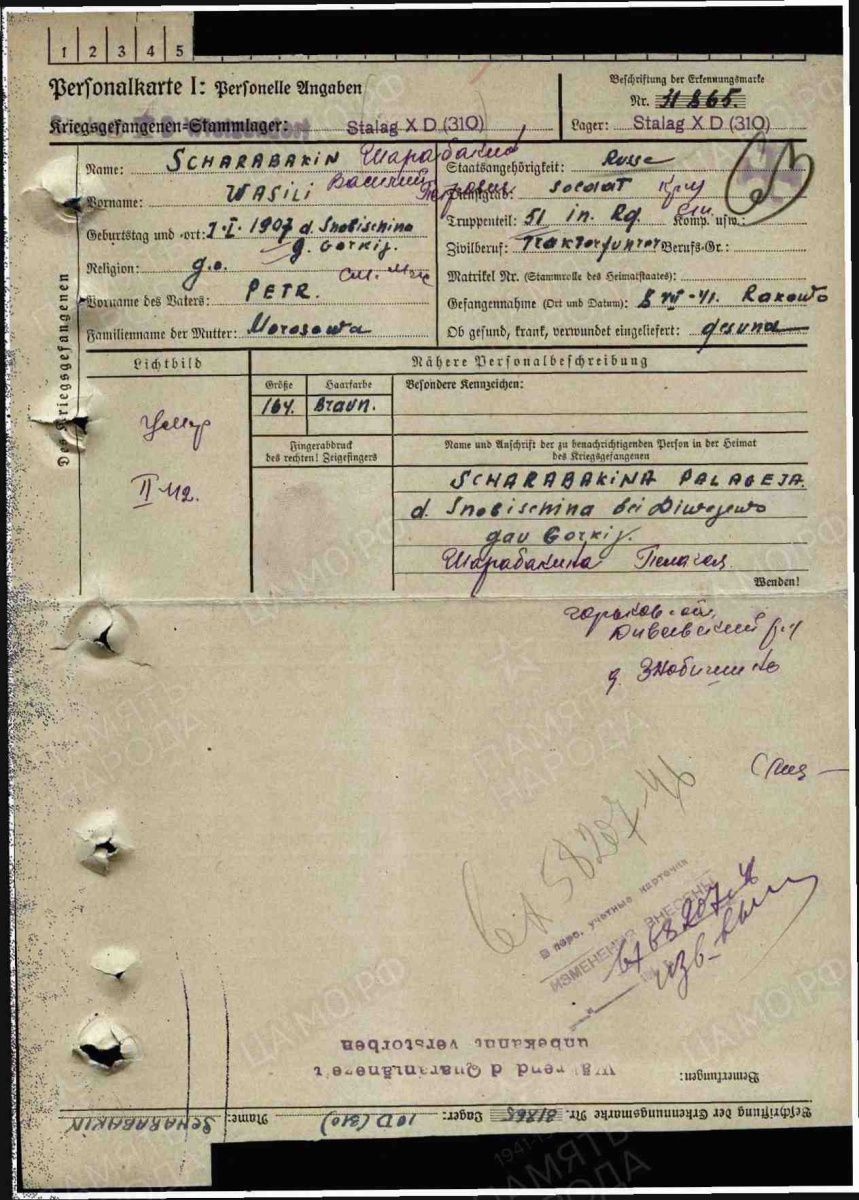 1 2 3 4 5
Personalkarte I: Personelle Angaben
Beschriftung der Erkennungsmarke
Nr. 31865.
Kriegsgefangenen-Stammlager: Stalag X D (310)
Lager: Stalag X D (310)
Des Kriegsgefangenen
Name: SCHARABAKIN Шарабакин
Staatsangehörigkeit: Russe
Vorname: WASILI Василий Петрович
Dienstgrad: Soldat
Geburtstag und -ort: 7.I.1907 d. Snobischina
g. Gorkij.
Truppenteil: 51 in. Rg. Komp. usw.:
Zivilberuf: Traktorführer Berufs-Gr.:
Religion: g.o.
Matrikel Nr. (Stammrolle des Heimatstaates):
Vorname des Vaters: PETR.
Gefangennahme (Ort und Datum): 8 VII-41. Rakowo
Familienname der Mutter: Morosowa
Ob gesund, krank, verwundet eingeliefert: gesund
Lichtbild
Nähere Personalbeschreibung
Größe
Haarfarbe
Besondere Kennzeichen:
164. Braun.
Fingerabdruck
des rechten! Zeigefingers
Name und Anschrift der zu benachrichtigenden Person in der Heimat
des Kriegsgefangenen
II 42.
SCHARABAKINA PALAGEJA.
d. Snobischina bei Diwejewo
gau Gorkij.
Шарабакина Пелагея
Wenden!
Горьков.
Дивеевский р-н
д. Знобишино
58207-46
В перс. учетные карточки
ИЗМЕНЕНИЯ ВНЕСЕНЫ
unbekannt verstorben
Während d Quarantänezeit
Bemerkungen:
Beschriftung der Erkennungsmarke Nr. 31865 Lager: 10D (310) Name: SCHARABAKIN
ЦАМО.РФ
ПАМЯТЬ
НАРОДА